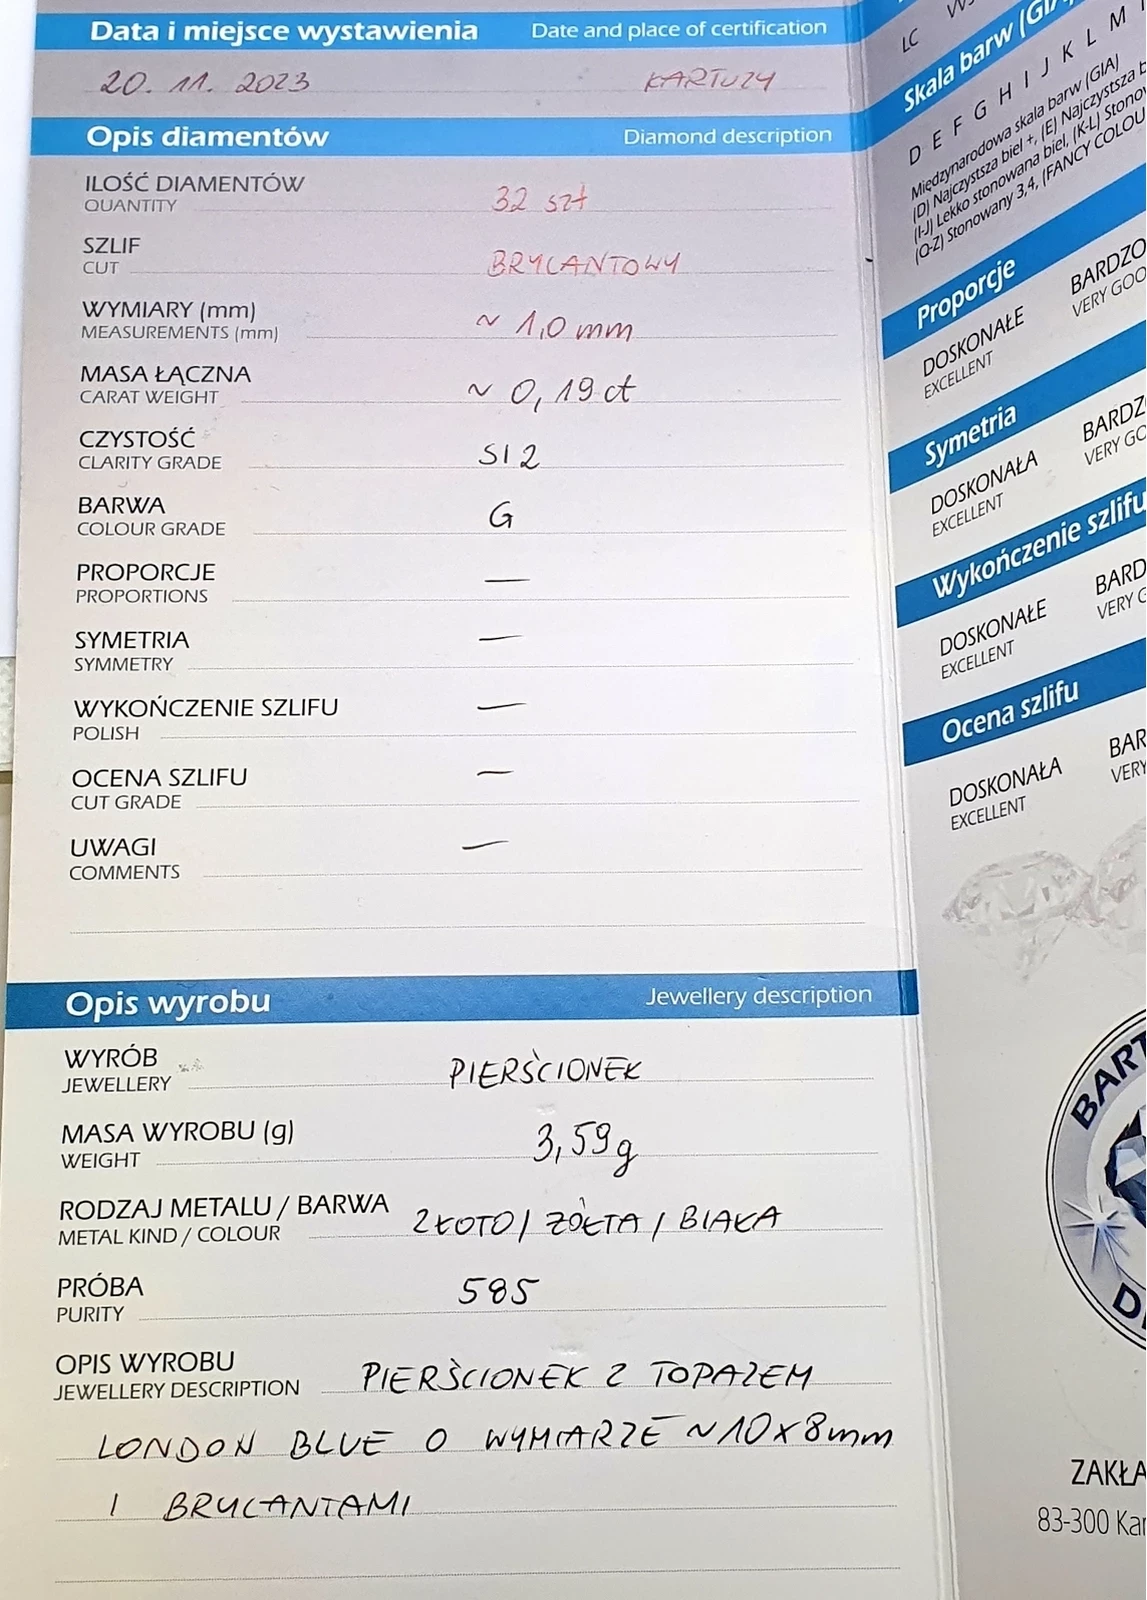 Data i miejsce wystawienia Date and place of certification
20. 11. 2023 KARTUZY
Opis diamentów Diamond description
ILOŚĆ DIAMENTÓW 32 szt
QUANTITY
SZLIF BRYLANTOWY
CUT
WYMIARY (mm) ~ 1,0 mm
MEASUREMENTS (mm)
MASA ŁĄCZNA ~ 0,19 ct
CARAT WEIGHT
CZYSTOŚĆ SI2
CLARITY GRADE
BARWA G
COLOUR GRADE
PROPORCJE —
PROPORTIONS
SYMETRIA —
SYMMETRY
WYKOŃCZENIE SZLIFU —
POLISH
OCENA SZLIFU —
CUT GRADE
UWAGI —
COMMENTS
Opis wyrobu Jewellery description
WYRÓB PIERŚCIONEK
JEWELLERY
MASA WYROBU (g) 3,59g
WEIGHT
RODZAJ METALU / BARWA ZŁOTO / ŻÓŁTA / BIAŁA
METAL KIND / COLOUR
PRÓBA 585
PURITY
OPIS WYROBU PIERŚCIONEK Z TOPAZEM
JEWELLERY DESCRIPTION
LONDON BLUE O WYMIARZE ~10x8mm
I BRYLANTAMI
LC
Skala barw (GIA
D E F G H I J K L M
Międzynarodowa skala barw (GIA)
(D) Najczystsza biel +, (E) Najczystsza
(I-J) Lekko stonowana biel, (K-L)
(Q-Z) Stonowany 3,4, (FANCY
Proporcje
DOSKONAŁE BARDZO
EXCELLENT VERY
Symetria
DOSKONAŁA
EXCELLENT VERY
Wykończenie szlifu
DOSKONAŁE
EXCELLENT VERY
Ocena szlifu
DOSKONAŁA
EXCELLENT VERY
83-300